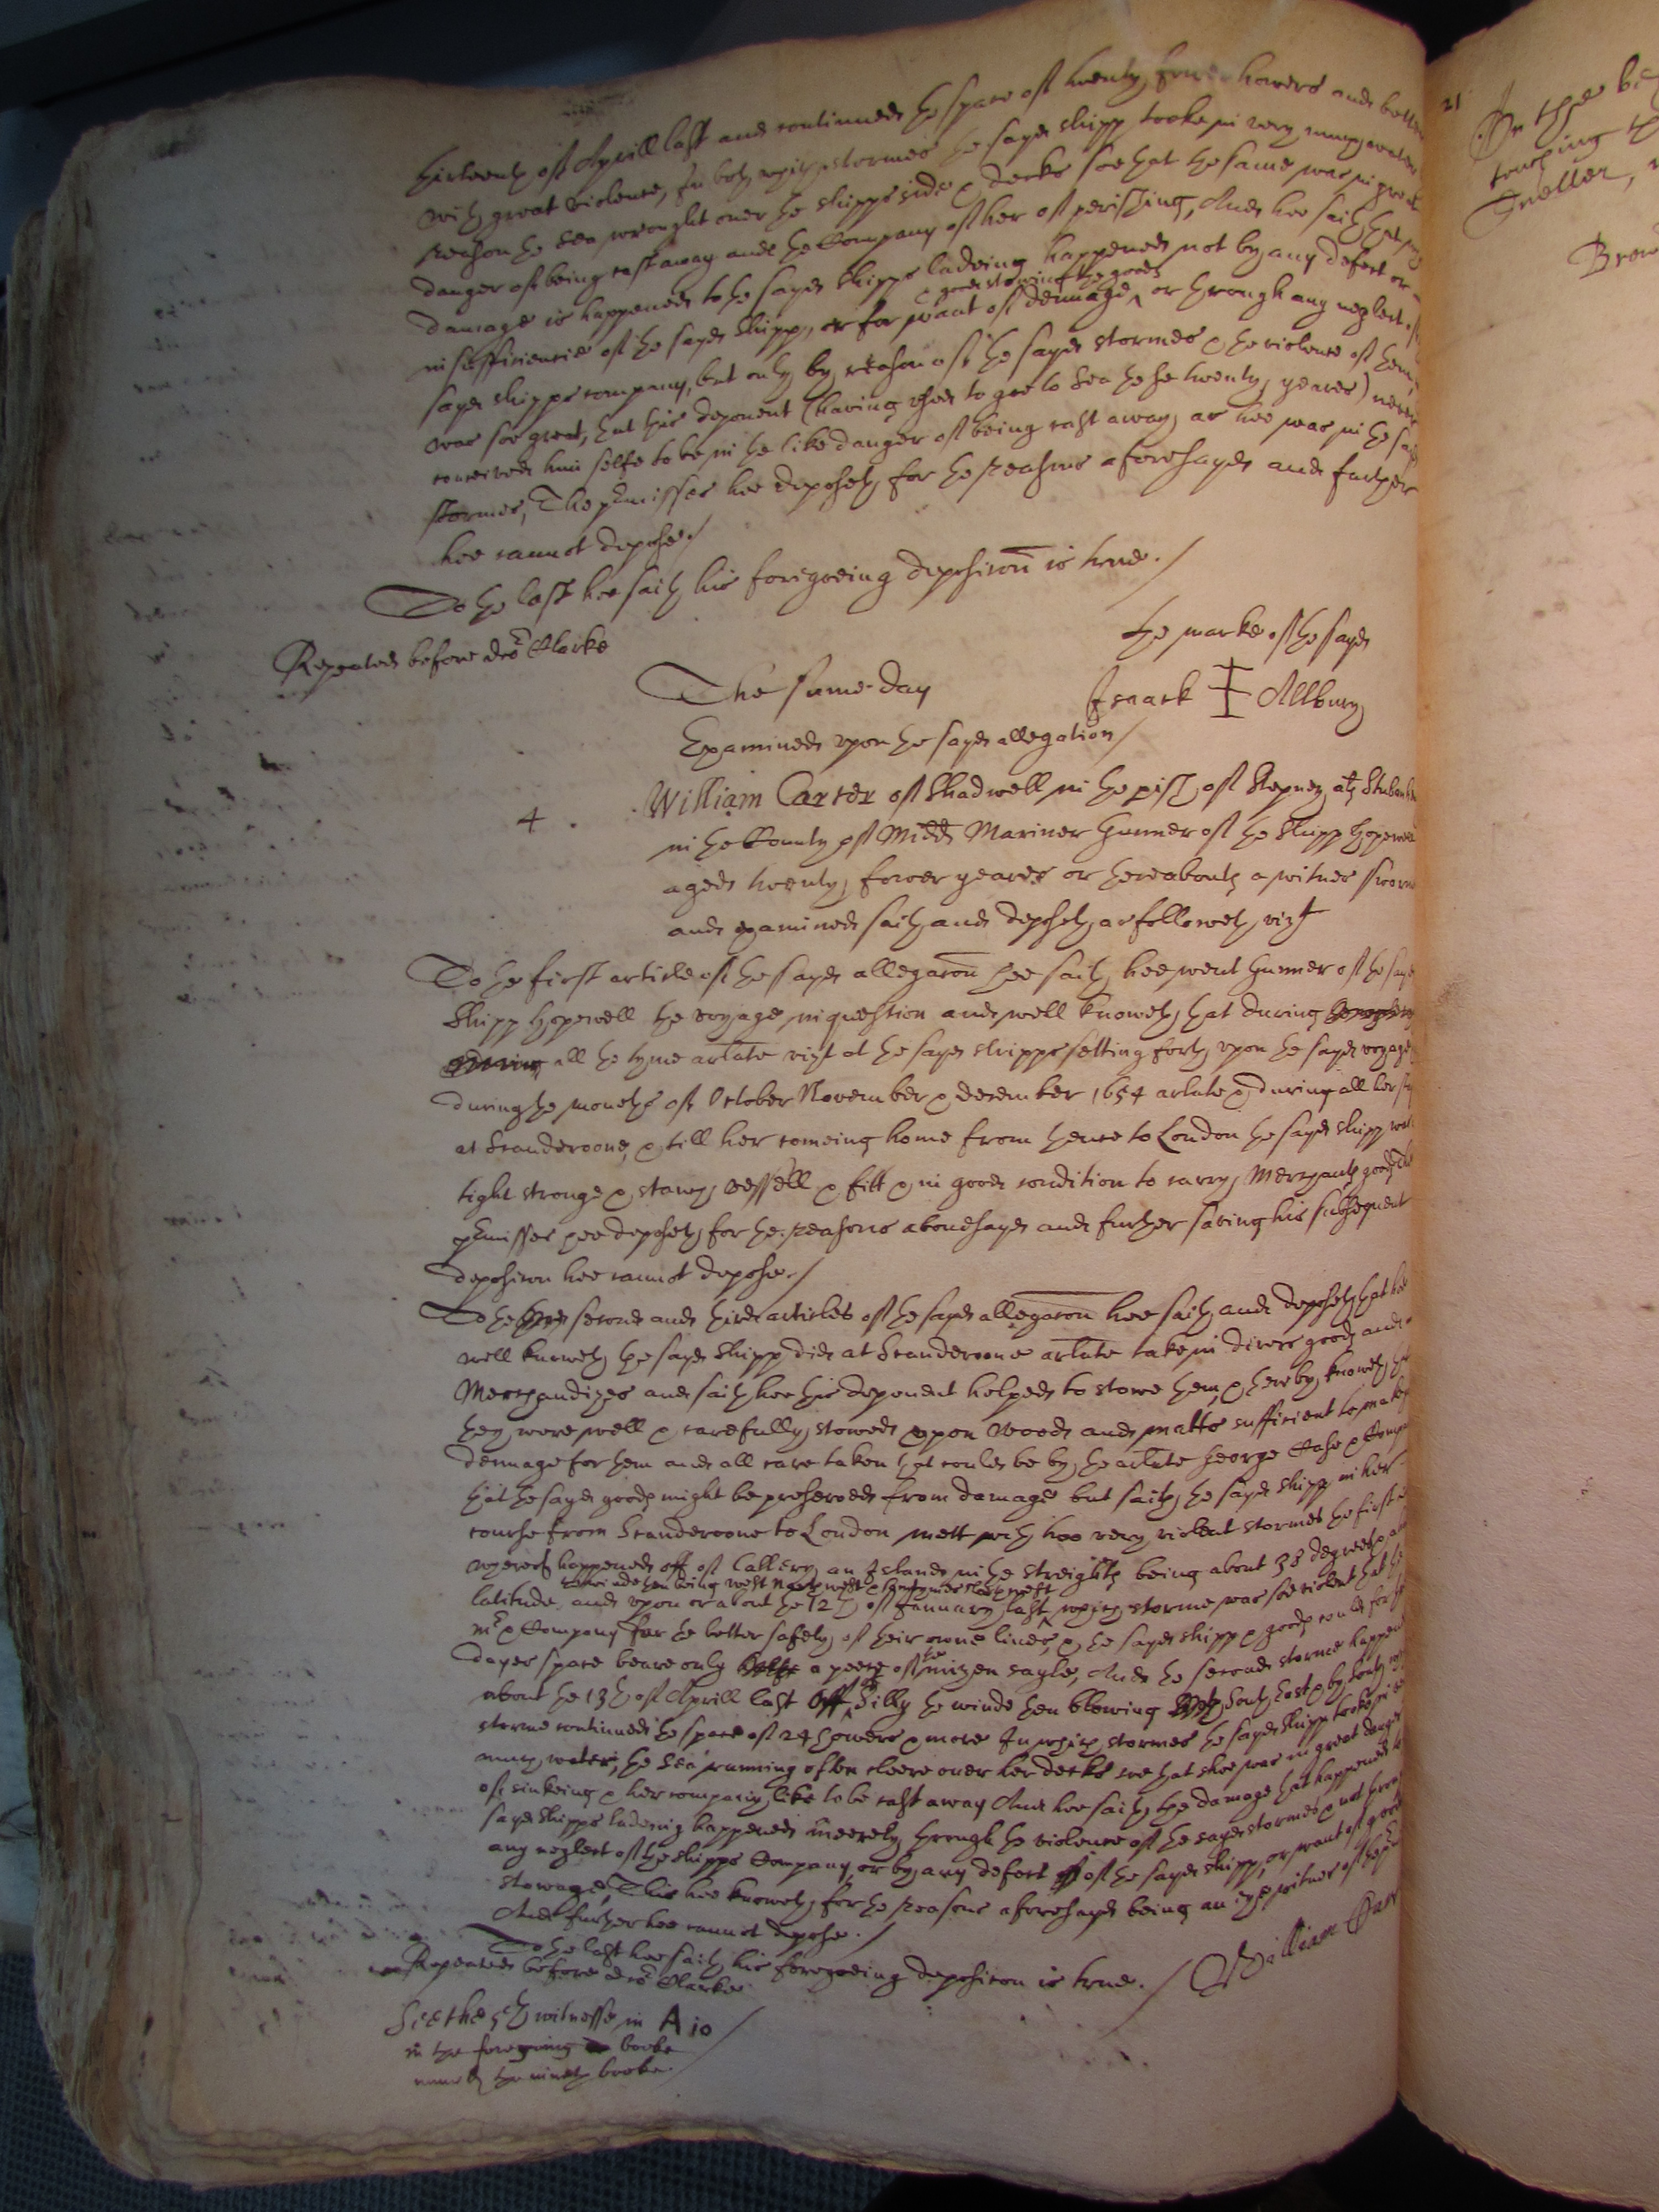 thirteenth of Aprill last and continued the space of twenty fower howers and better
with great violence, In both which stormes the sayd shipp tooke in very much water
reason the sea wrought over the shipps side & decks soe that the same was in great
danger of being cast away and the Company of her of perishing, And hee saith that
damage is happened to the sayd shipps ladeing happened not by any defect or
insufficiencie of the sayd shipp, or for want of dennage & good stowing the goods or through any neglect of
sayd shipps company, but only by reason of the sayd stormes & the violence of them,
was soe great, that this deponent (having used to goe to Sea these twenty yeares) never
conceived him selfe to be in the like danger of being cast away as hee was in the said
stormes, The premisses hee deposeth for the reasons aforesayd and further
hee cannot depose./
To the last hee saith his foregoeing deposicon is true./
Repeated before dor Clarke
the marke of the sayd
Isaack Allbury
The same day
Examined upon the sayd allegation/
4 . William Carter of Shadwell in the pish of Stepney als Stuban
in the County of Midd Mariner Gunner of the Shipp Hopewell
aged twenty fower yeares or thereabouts a witnes sworne
and examined saith and deposeth as followeth, vizt
To the first article of the sayd allegacon hee saith, hee went Gunner of the sayd
Shipp Hopewell the voyage in question and well knoweth that during
all the tyme arlate vizt at the sayd shipps setting forth upon the sayd voyage
during the moneths of October November & december 1654 arlate & during all her stay
at Scanderoone, & till her comeing home from thence to London the sayd shipp was
tight stronge & stanch vessell & fitt & in good condition to carry Merchants goods The
pmisses hee deposeth for the reasons abovesayd and further saving his subsequent
deposicon hee cannot depose./
To the second and third articles of the sayd allegacon hee saith and deposeth that hee
well knoweth the sayd Shipp did at Scanderoone arlate take in divers goods and
Merchandizes and saith hee this deponent helped to stowe them, & thereby knoweth that
they were well & carefully stowed upon wood and matts sufficient to make
dennage for them and all care taken that could be by the arlate George Case & Company
that the sayd goods might be preserved from damage but saith, the sayd shipp in her
course from Scanderoone to London mett with two very violent stormes the first
whereof happened off of Callery an Island in the streights being about 38 degrees
the winde then being west Northwest & sometymes Northwest
latitude, and upon or about the 12th of January last which storme was soe violent that the
mr & Company for the better safety of their owne lives, & the sayd shipp & goods could for
dayes space beare only a peece of the mizen sayle, And the second storme happened
about the 13th of Aprill last off of Silly the winde then blowing South East & by South
storme continued the space of 24 howers & more In which stormes the sayd shipp tooke in
much water, the sea running often cleere over her decks soe that shee was in great danger
of sinkeing & her company like to be cast away And hee saith, the damage that happened to
sayd shipps ladeing happened meerely through the violence of the sayd stormes & not through
any neglect of the shipps Company or by any defect of the sayd shipp, or want of good
stowage, This hee knoweth for the reasons aforesayd being an eye witnes of the
And further hee cannot depose./
To the last hee saith his foregoeing deposicon is true./ William Car
Repeated before dor Clarke
See the 5th witnesse in A 10
in the foregoing booke
namely the nineth booke./
21
In the
touching th
Brow